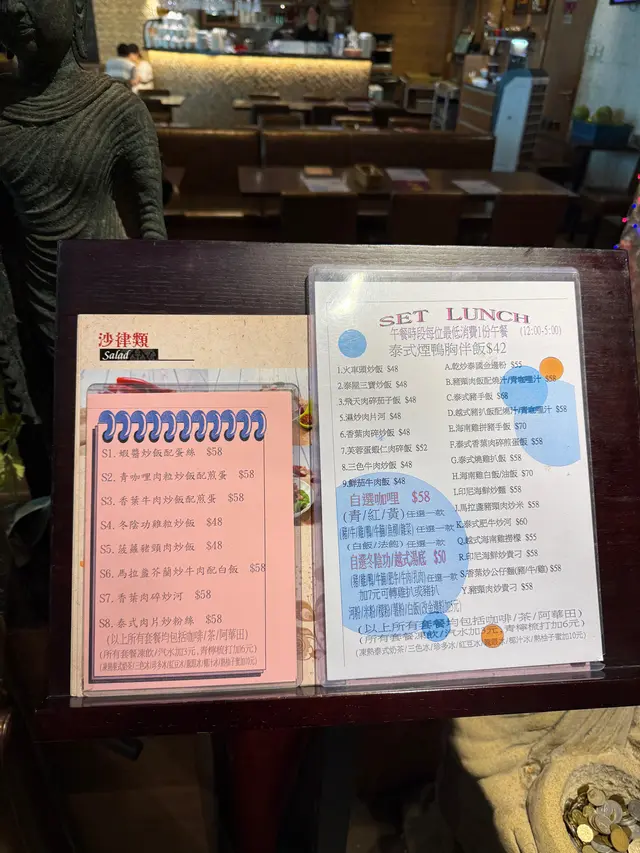 沙律類
Salad
S1. 蝦醬炒飯配蛋絲 $58
S2. 青咖哩肉粒炒飯配煎蛋 $58
S3. 香葉牛肉炒飯配煎蛋 $58
S4. 冬陰功雞粒炒飯 $48
S5. 菠蘿豬頭肉炒飯 $48
S6. 馬拉盞芥蘭炒牛肉配白飯 $58
S7. 香葉肉碎炒河 $58
S8. 泰式肉片炒粉絲 $58
(以上所有套餐均包括咖啡/茶/阿華田)
(所有套餐凍飲/汽水加3元,青檸梳打加6元)
SET LUNCH
午餐時段每位最低消費1份午餐 (12:00-5:00)
泰式煙鴨胸伴飯$42
1.火車頭炒飯 $48
2.泰屋三寶炒飯 $48
3.飛天肉碎茄子飯 $48
5.濕炒肉片河 $48
6.香葉肉碎炒飯 $48
7.芙蓉蜜蝦仁肉碎飯 $52
8.三色牛肉炒飯 $48
9.鮮茄牛肉飯 $48
自選咖哩 $58
(青/紅/黃)任選一款
(白飯/法包)任選一款
自選冬陰功/越式湯底 $50
加7元可轉雞扒或豬扒
A.乾炒泰國金邊粉 $55
B.豬頸肉飯配燒汁/青咖哩汁 $58
C.泰式豬手飯 $68
D.越式豬扒飯配燒汁/青咖哩汁 $58
E.海南雞拼豬手飯 $70
F.泰式香葉肉碎煎蛋飯 $58
G.泰式燒雞扒飯 $58
H.海南雞白飯/油飯 $70
I.印尼海鮮炒麵 $58
J.馬拉盞豬頸肉炒米 $58
K.泰式肥牛炒河 $60
Q.越式海南雞撈檬 $55
R.印尼海鮮炒貴刁 $58
S.香葉炒公仔麵(豬/牛/雞) $58
Y.豬頸肉炒貴刁 $58
(以上所有套餐均包括咖啡/茶/阿華田)
(所有套餐凍飲/汽水加3元,青檸梳打加6元)